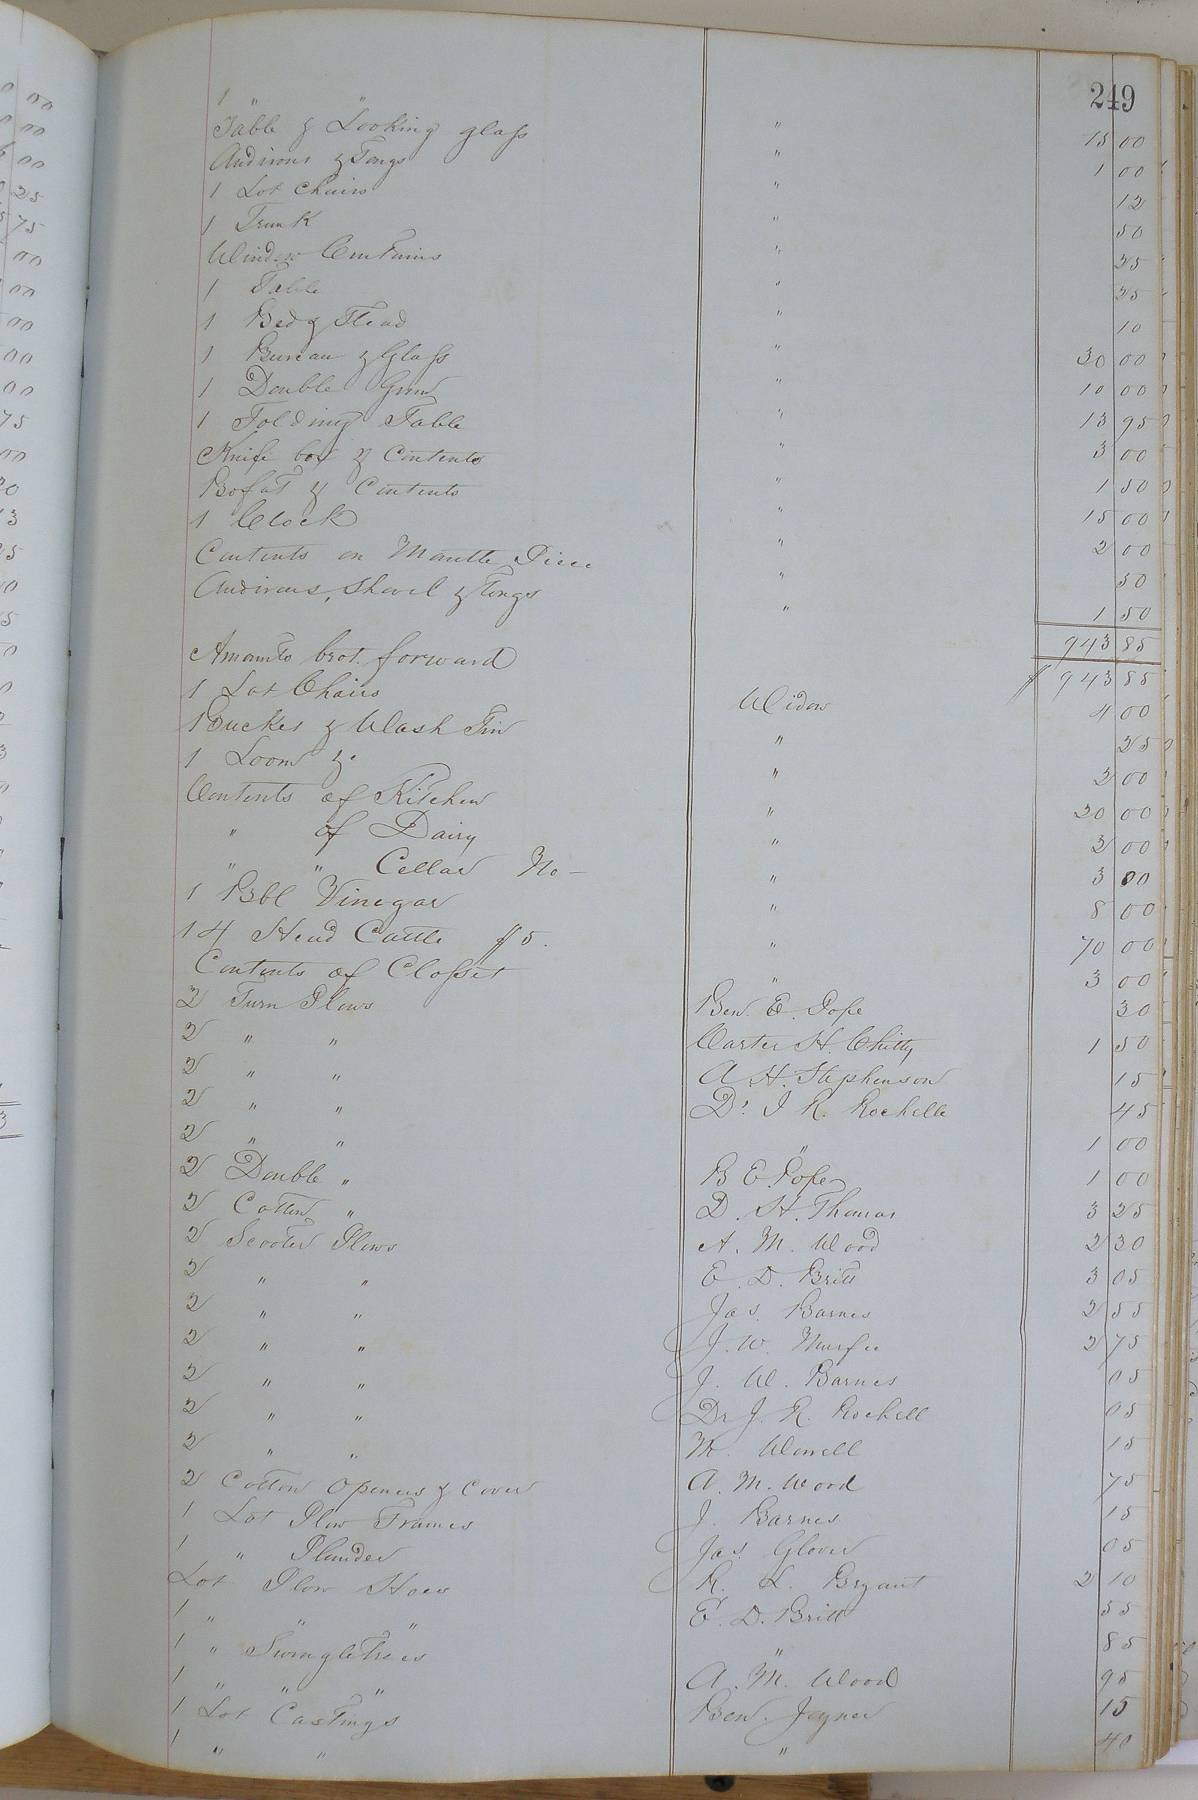 249
1 " "
Table & Looking glass " 15 00
Andirons & Tongs " 1 00
1 Lot Chairs " 12
1 Trunk " 50
Window Curtains " 25
1 Table " 25
1 Bed & Stead " 10
1 Bureau & Glass " 30 00
1 Double Gun " 10 00
1 Folding Table " 13 95
Knife box & Contents " 3 00
Bofat & Contents " 1 50
1 Clock " 15 00
Contents on Mantle Piece " 2 00
Andirons, Shovel & Tongs " 50
" 1 50
943 85
Amounts brot. forward $ 943 85
1 Lot Chairs Widow 4 00
1 Bucket & Wash Tin " 25
1 Loom &c " 2 00
Contents of Kitchen " 20 00
" of Dairy " 2 00
" " Cellar No — " 3 00
1 Bbl Vinegar " 8 00
14 Head Cattle $5. " 70 00
Contents of Closset " 3 00
2 Turn Plows Ben. E. Pope 30
2 " " Carter H. Chitty 1 50
2 " " A. H. Stephenson 15
2 " " Dr. J R. Rochelle 45
2 " " " 1 00
2 Double " B E. Pope 1 00
2 Cotton " D. H. Thomas 3 25
2 Scooter Plows A. M. Wood 2 30
2 " " E. D. Britt 3 05
2 " " Jas. Barnes 2 55
2 " " J. W. Murfee 2 75
2 " " J. W. Barnes 05
2 " " Dr J. R. Rochell 05
2 " " Worrell 15
2 Cotton Openers & Cover A. M. Wood 75
1 Lot Plow Frames J. Barnes 15
1 " Plunder Jas. Glover 05
Lot Plow Hoes R. L. Bryant 2 10
1 " " " E. D. Britt 55
1 " Swingletrees " 85
1 " " " A. M. Wood 95
1 Lot Castings Ben. Joyner 15
1 " " " 40